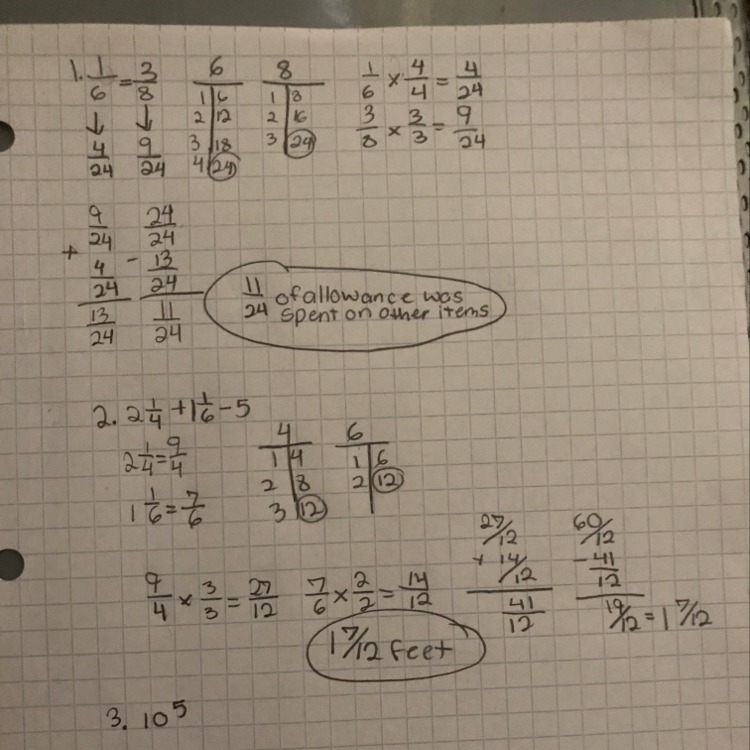 1. 1/6 = 3/8
↓ ↓
4/24 9/24
6
1 | 6
2 | 12
3 | 18
4 | 24
8
1 | 8
2 | 16
3 | 24
1/6 × 4/4 = 4/24
3/8 × 3/3 = 9/24
9/24
+ 4/24
13/24
24/24
- 13/24
11/24
11/24 of allowance was
spent on other items
2. 2 1/4 + 1 1/6 - 5
2 1/4 = 9/4
1 1/6 = 7/6
4
1 | 4
2 | 8
3 | 12
6
1 | 6
2 | 12
9/4 × 3/3 = 27/12
7/6 × 2/2 = 14/12
27/12
+ 14/12
41/12
60/12
- 41/12
19/12 = 1 7/12
1 7/12 feet
3. 10⁵